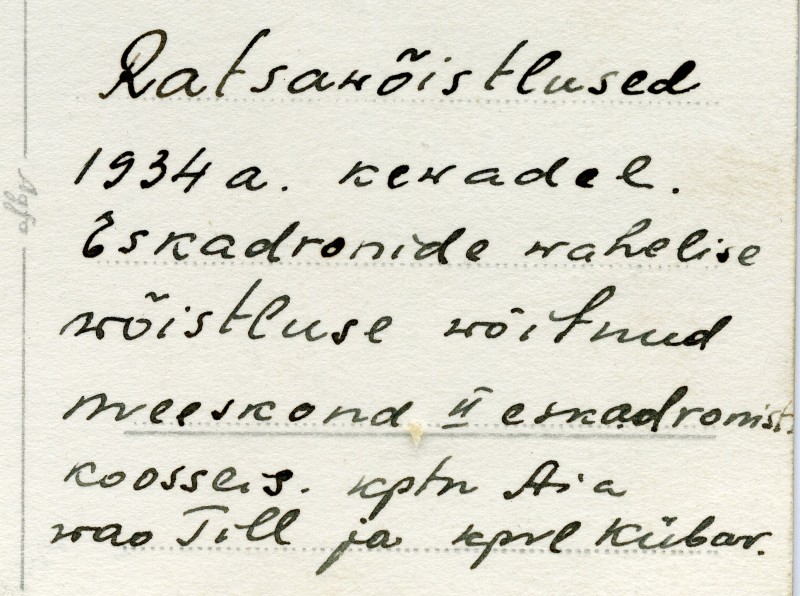 Ratsawõistlused
1934 a. kewadel.
Eskadronide wahelise
wõistluse wõitnud
meeskond II eskadronist.
koosseis. kptn Aia
wao Till ja kprl Kübar.
Agfa